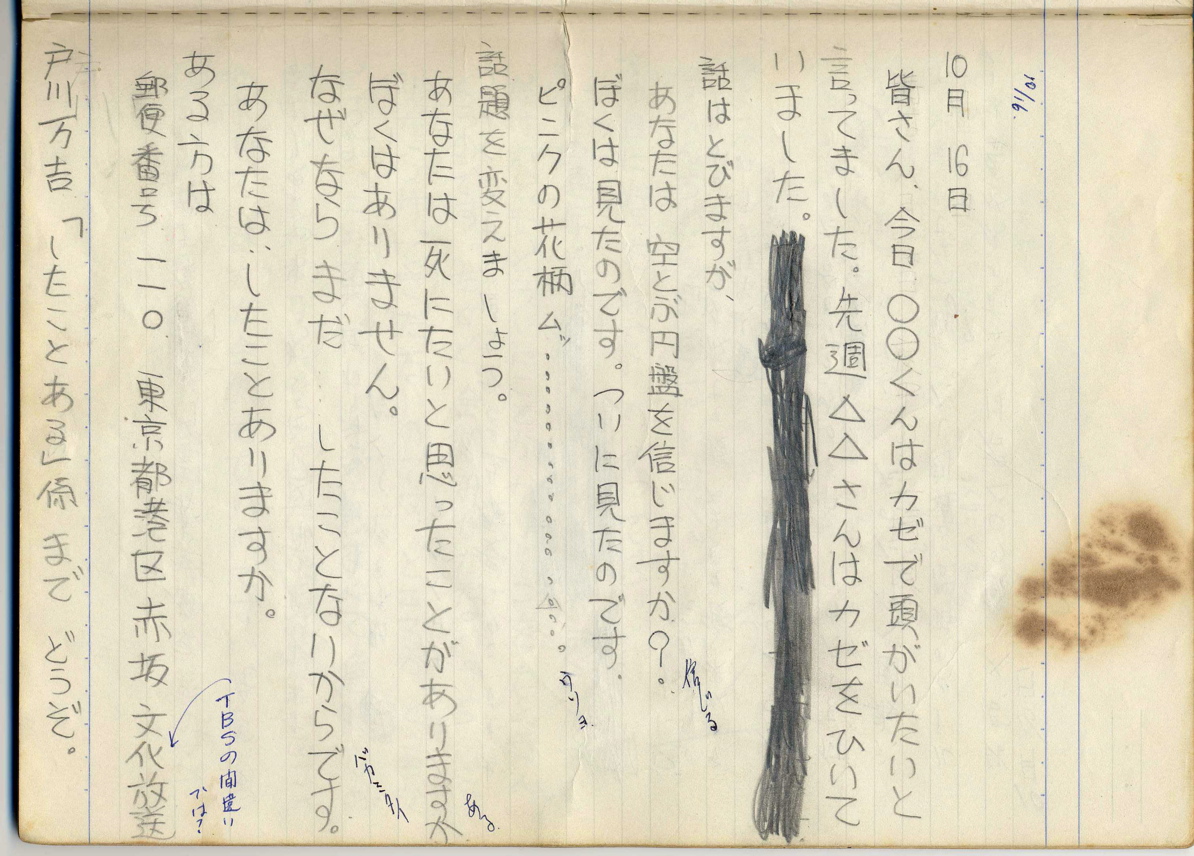 10/16.
10月 16日
皆さん、今日 〇〇くんはカゼで頭がいたいと
言ってました。先週 △△さんはカゼをひいて
いました。
話はとびますが、
あなたは 空とぶ円盤を信じますか?。
信じる
ぼくは見たのです。ついに見たのです.
ピンクの花柄
話題を変えましょう。
あなたは死にたいと思ったことがありますか
ある。
ぼくはありません。
なぜなら まだ……したことないからです。
あなたは‥したことありますか。
ある方は
郵便番号 一一〇. 東京都港区赤坂 文化放送
TBSの間違い
では?
戸川万吉 「したことある」係 まで どうぞ。